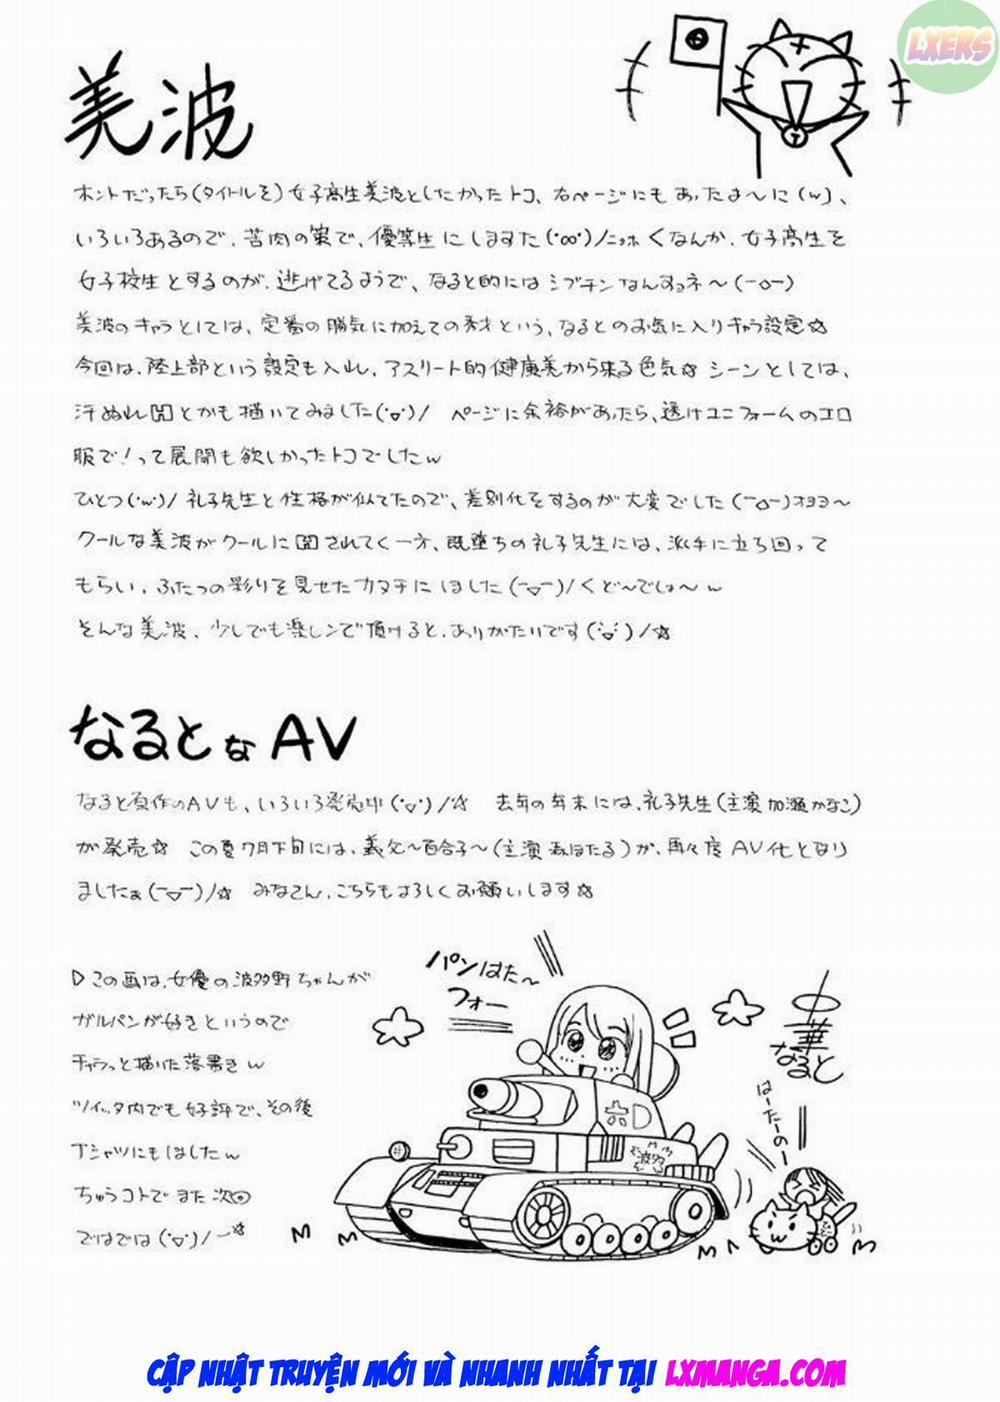 LXERS
美波
ホントだったら(タイトルを)女子高生美波としたかったトコ、右ページにもあったよ〜に(w)、
いろいろあるので、苦肉の策で、優等生にしますた(^∞^)/ニョホ くなんか、女子高生を
女子校生とするのが、逃げてるようで、なると的にはシブチンなんすョネ〜(ーoー)
美波のキャラとしては、定番の勝気に加えての秀才という、なるとのお気に入りキャラ設定☆
今回は、陸上部という設定も入れ、アスリート的健康美から来る色気☆シーンとしては、
汗ぬれ図とかも描いてみました(^▽^)/ ページに余裕があったら、透けユニフォームのエロ
服で!って展開も欲しかったトコでしたw
ひとつ(^w^)/礼子先生と性格が似てたので、差別化をするのが大変でした(ーoー)オヨヨ〜
クールな美波がクールに図されてく一方、既堕ちの礼子先生には、派手に立ち回って
もらい、ふたつの彩りを見せたカタチにしました(ー▽ー)/くど〜でしょ〜w
そんな美波、少しでも楽しンで頂けると、ありがたいです(^▽^)/☆
なるとなAV
なると原作のAVも、いろいろ発売中(^▽^)/☆ 去年の年末には、礼子先生(主演 加瀬かなこ)
が発売☆ この夏7月下旬には、義父〜百合子〜(主演 森ほたる)が、再々度AV化となり
ましたぁ(ー▽ー)/☆ みなさん、こちらもよろしくお願いします☆
▷この画は、女優の波多野ちゃんが
ガルパンが好きというので
チャラっと描いた落書きw
ツイッタ内でも好評で、その後
Tシャツにもしましたw
ちゅうコトでまた次回
ではでは(^▽^)/ー☆
パンはた〜
フォー
中華
なると
はーたーのー
CẬP NHẬT TRUYỆN MỚI VÀ NHANH NHẤT TẠI LXMANGA.COM